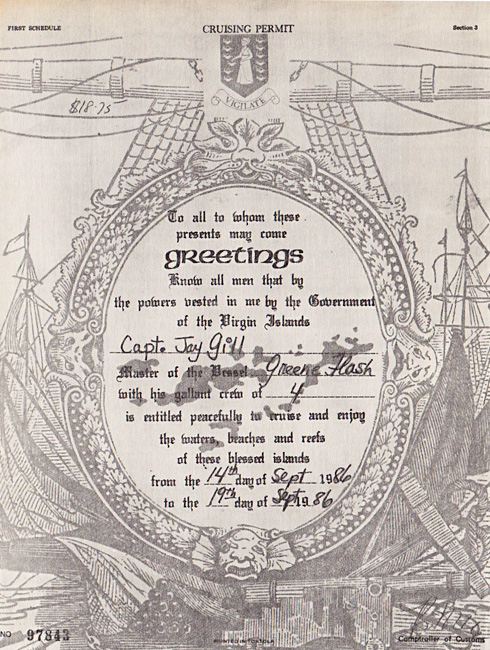 FIRST SCHEDULE
CRUISING PERMIT
Section 3
VIGILATE
$18.75
To all to whom these
presents may come
GREETINGS
Know all men that by
the powers vested in me by the Government
of the Virgin Islands
Capt. Jay Gill
Master of the Vessel Greene Flash
with his gallant crew of 4
is entitled peacefully to cruise and enjoy
the waters, beaches and reefs
of these blessed islands
from the 14th day of Sept 1986
to the 19th day of Sept 1986
NO 97843
PRINTED IN
Comptroller of Customs